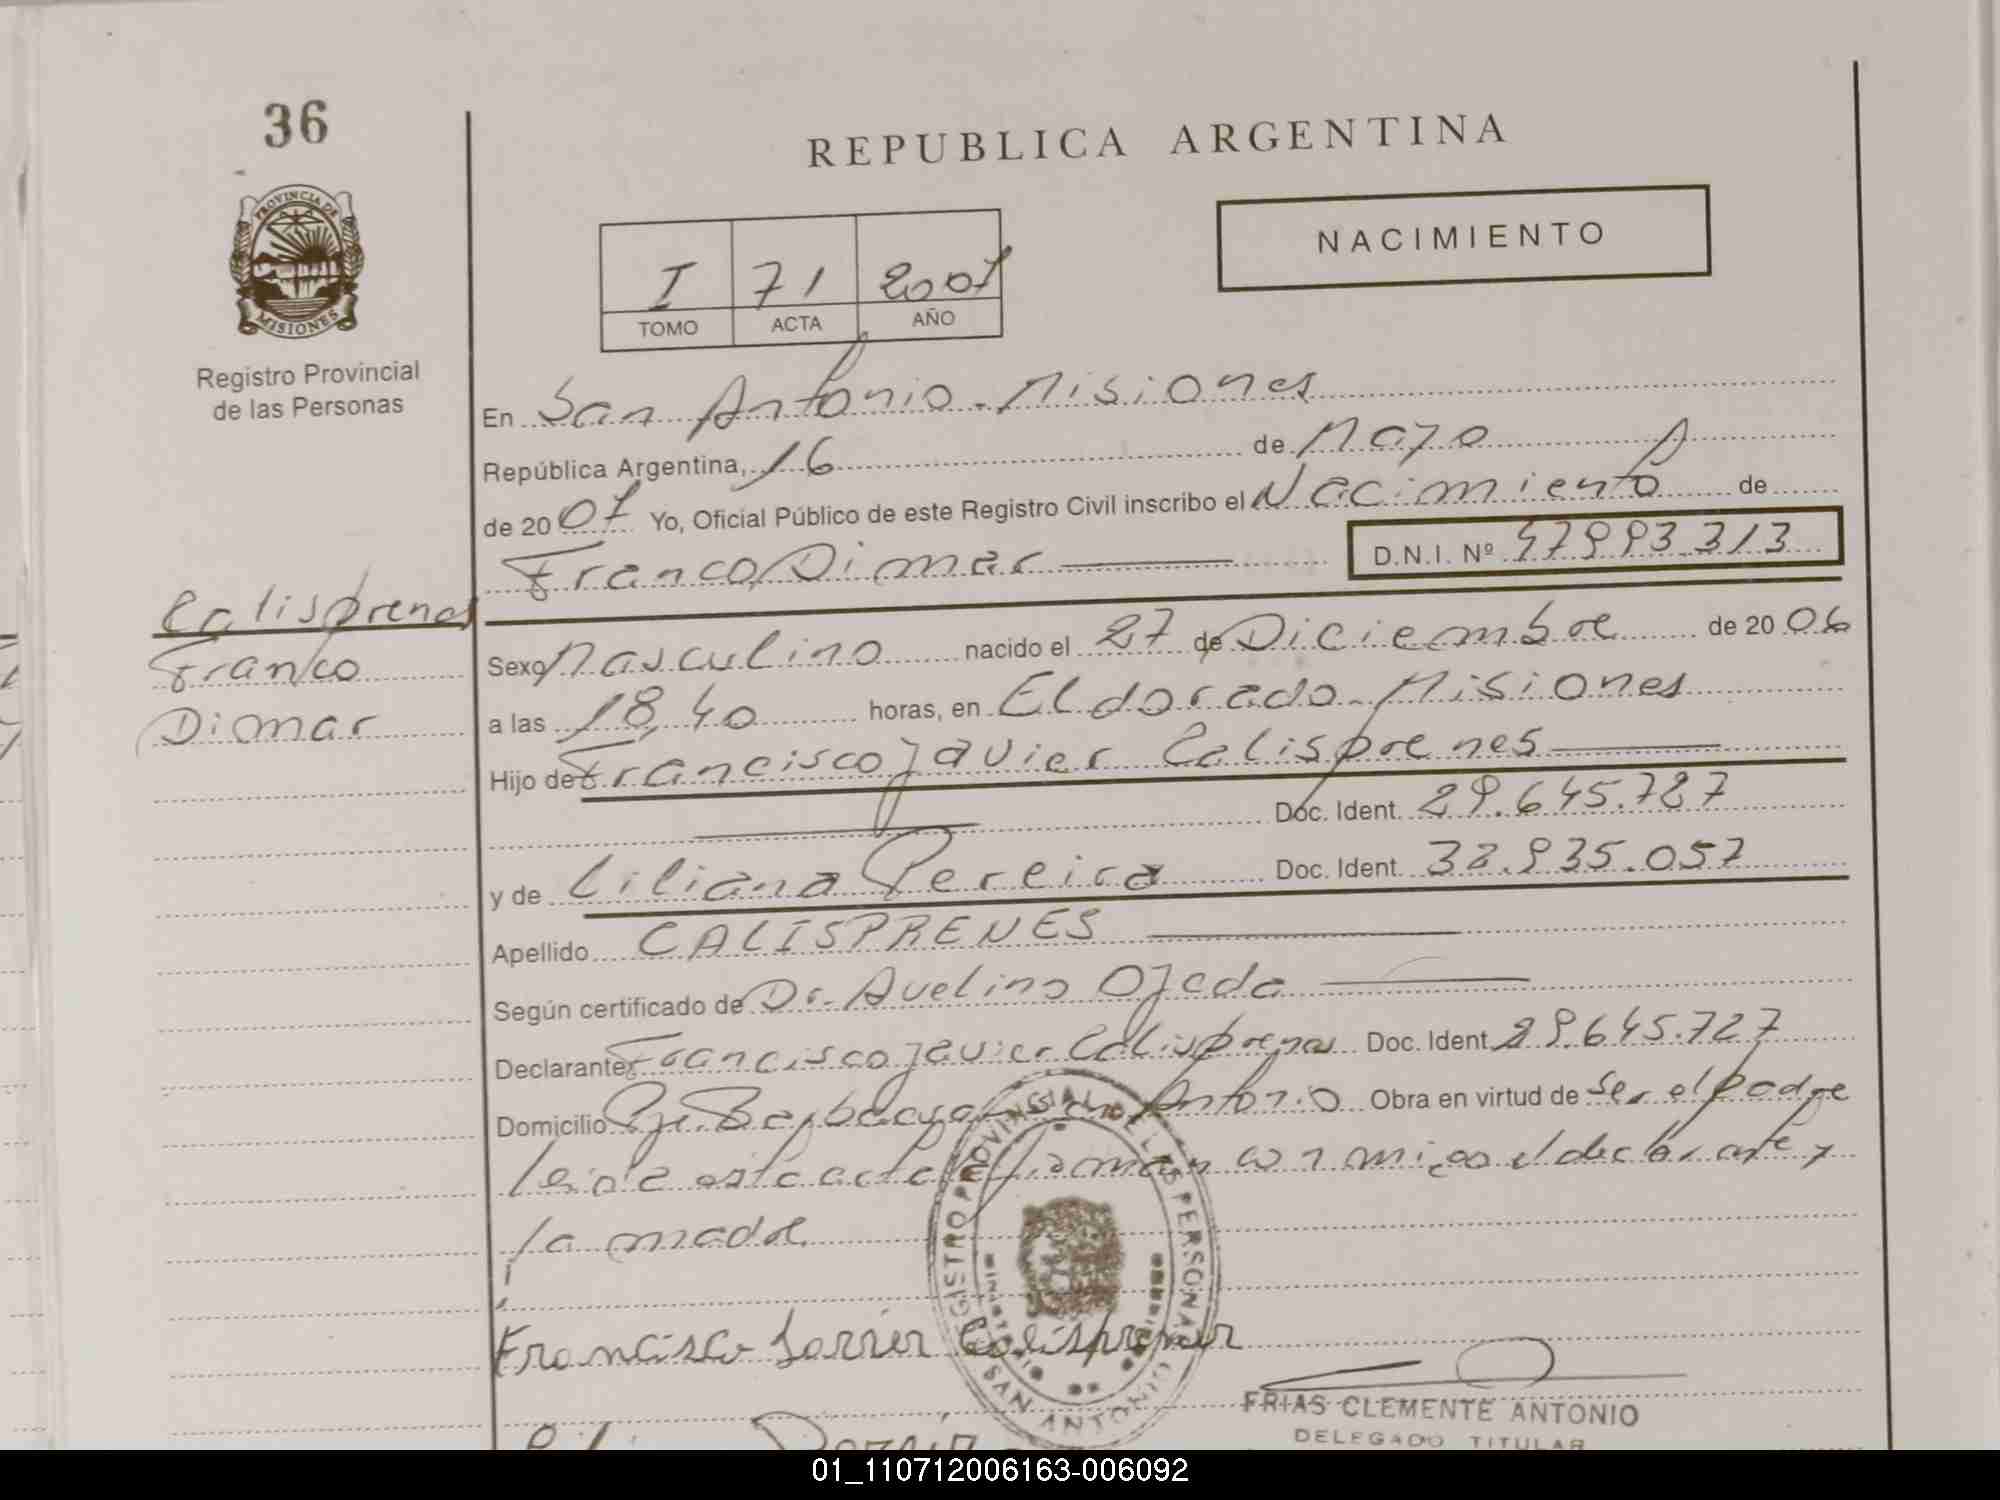 36
PROVINCIA DE
MISIONES
Registro Provincial
de las Personas
REPUBLICA ARGENTINA
NACIMIENTO
I 71 2007
TOMO ACTA AÑO
En San Antonio - Misiones
República Argentina, 16 de Mayo
de 2007 Yo, Oficial Público de este Registro Civil inscribo el Nacimiento de
Franco Dimar D.N.I. Nº 47993313
Calisprenes
Franco
Dimar
Sexo Masculino nacido el 27 de Diciembre de 2006
a las 18,40 horas, en Eldorado - Misiones
Hijo de Francisco Javier Calisprenes
Doc. Ident. 29.645.727
y de Liliana Pereira Doc. Ident. 32.935.057
Apellido CALISPRENES
Según certificado de Dr. Avelino Ojeda
Declarante Francisco Javier Calisprenes Doc. Ident. 29.645.727
Domicilio San Antonio Obra en virtud de ser el padre
leida esta acta firman conmigo el declarante y
la madre
Francisco Javier Calisprenes
REGISTRO PROVINCIAL DE LAS PERSONAS
SAN ANTONIO
FRIAS CLEMENTE ANTONIO
DELEGADO TITULAR
01_110712006163-006092